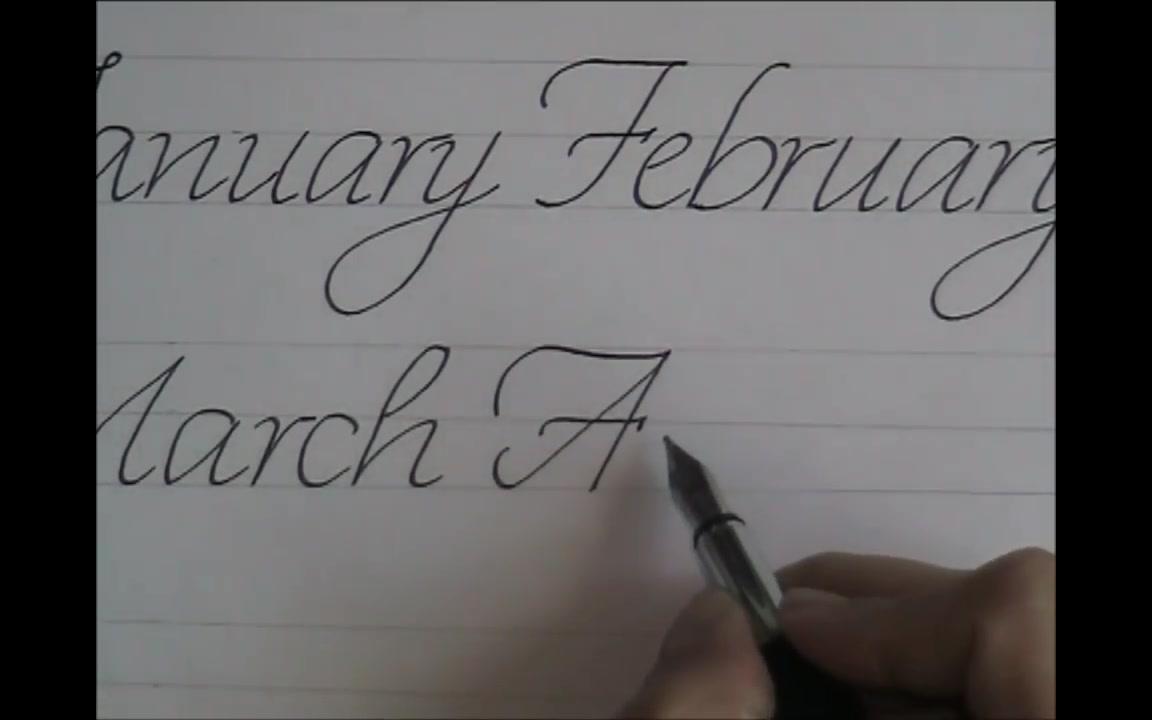 January February
March A